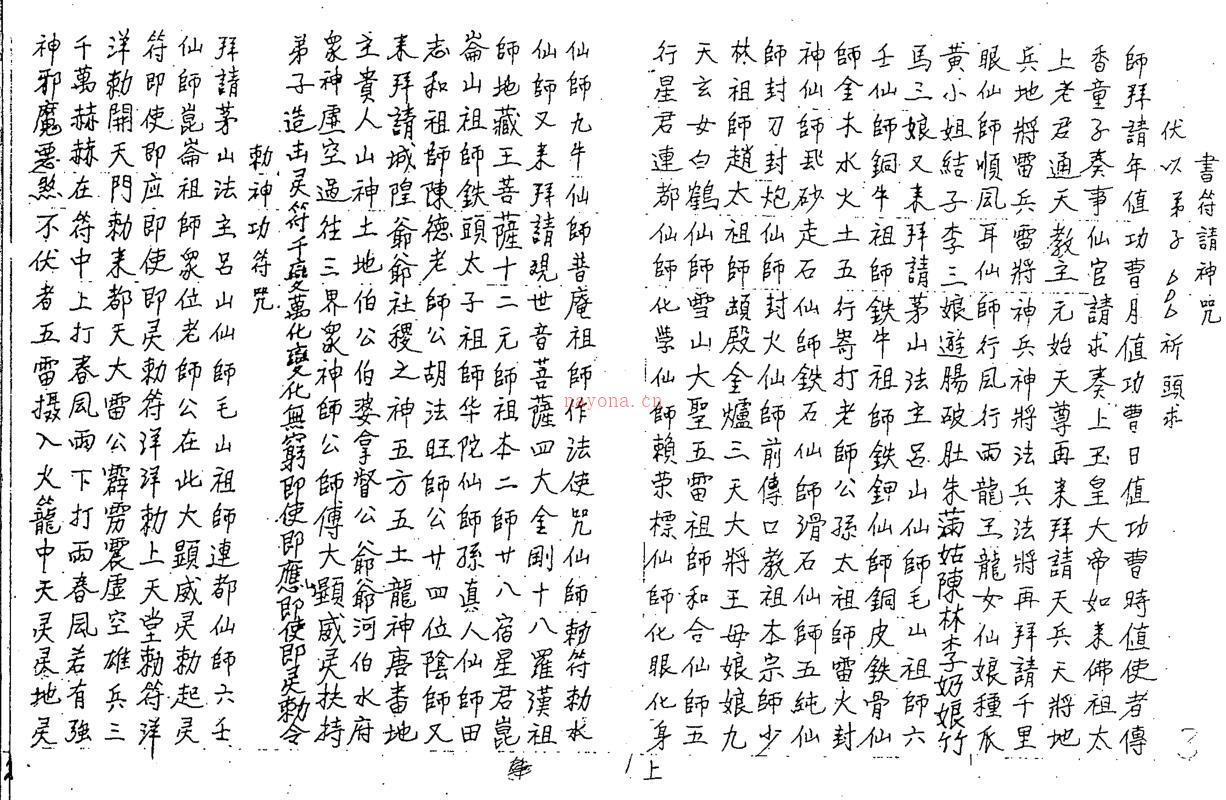 書符請神咒
伏以弟子 祈頭求
師拜請年值功曹月值功曹日值功曹時值使者傳
香童子奏事仙官請求奏上玉皇大帝如来佛祖太
上老君通天教主元始天尊再来拜請天兵天將地
兵地將雷兵雷將神兵神將法兵法將再拜請千里
眼仙師順風耳仙師行風行雨龍王龍女仙娘種瓜
黃小姐結子李三娘遊腸破肚朱滿姑陳林李奶娘竹
馬三娘又来拜請茅山法主呂山仙師毛山祖師六
壬仙師銅牛祖師鉄牛祖師鉄鉀仙師銅皮鉄骨仙
師金木水火土五行寄打老師公孫太祖師雷火封
神仙師飛砂走石仙師鉄石仙師滑石仙師五純仙
師封刀封炮仙師封火仙師前傳口教祖本宗師少
林祖師趙太祖師頡殿金爐三天大將王母娘娘九
天玄女白鶴仙師雪山大聖五雷祖師和合仙師五
行星君連都仙師化學仙師賴荣標仙師化眼化身
仙師九牛仙師普庵祖師作法使咒仙師勅符勅水
仙師又来拜請現世音菩薩四大金剛十八羅漢祖
師地藏王菩薩十二元師祖本二師廿八宿星君崑
崙山祖師鉄頭太子祖師华陀仙師孫真人仙師田
志和祖師陳德老師公胡法旺師公廿四位陰師又
来拜請城隍爺爺社稷之神五方五土龍神唐畨地
主貴人山神土地伯公伯婆拿督公爺爺河伯水府
衆神虛空過往三界衆神師公師傅大顯威灵扶持
弟子造出灵符千變萬化變化無窮即使即應即使即灵勅令
勅神功符咒
拜請茅山法主呂山仙師毛山祖師連都仙師六壬
仙師崑崙祖師衆位老師公在此大顯威灵勅起灵
符即使即应即使即灵勅符洋洋勅上天堂勅符洋
洋勅開天門勅来都天大雷公霹雳震虛空雄兵三
千萬赫赫在符中上打春風雨下打雨春風若有強
神邪魔惡煞不伏者五雷摄入火籠中天灵灵地灵
上
3
nayona.cn